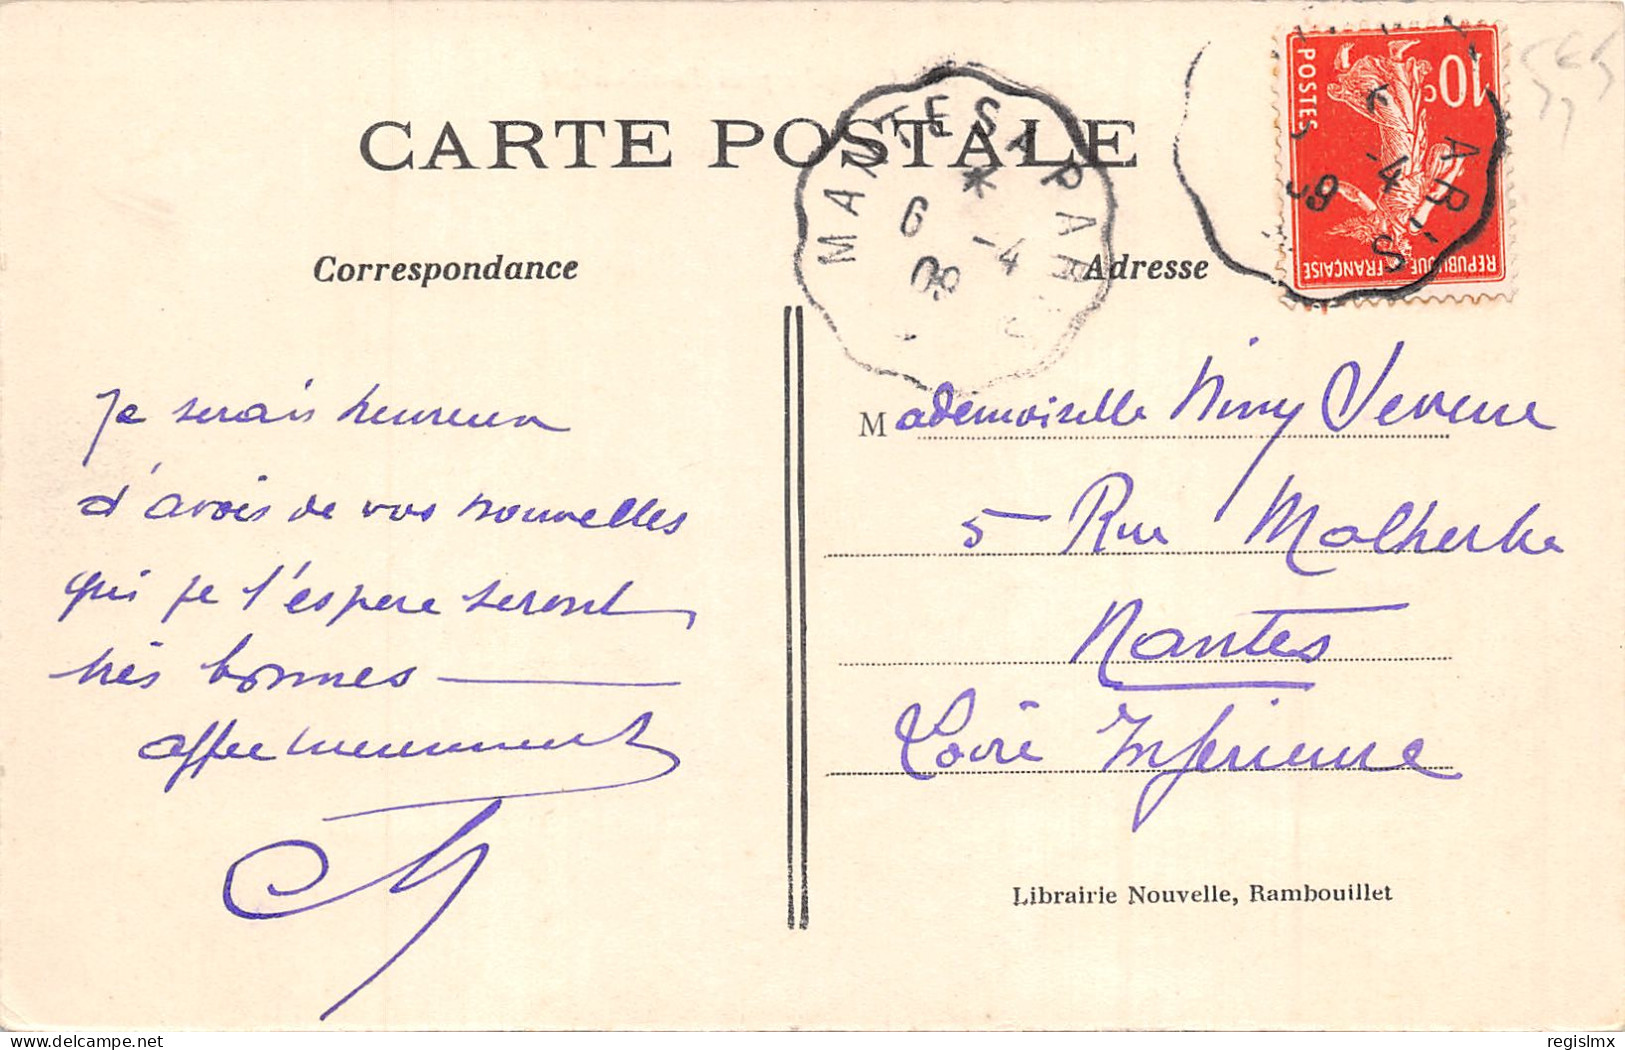 CARTE POSTALE
Correspondance
Adresse
MANTES A PARIS
6 -4
09
10c
POSTES
REPUBLIQUE FRANÇAISE
ARIS
-4
09
Je serais heureux
d'avoir de vos nouvelles
qui je l'espere seront
très bonnes
affectueusement
Mademoiselle Niny
5 Rue Malherbe
Nantes
Loire Inférieure
Librairie Nouvelle, Rambouillet
delcampe.net
regislmx